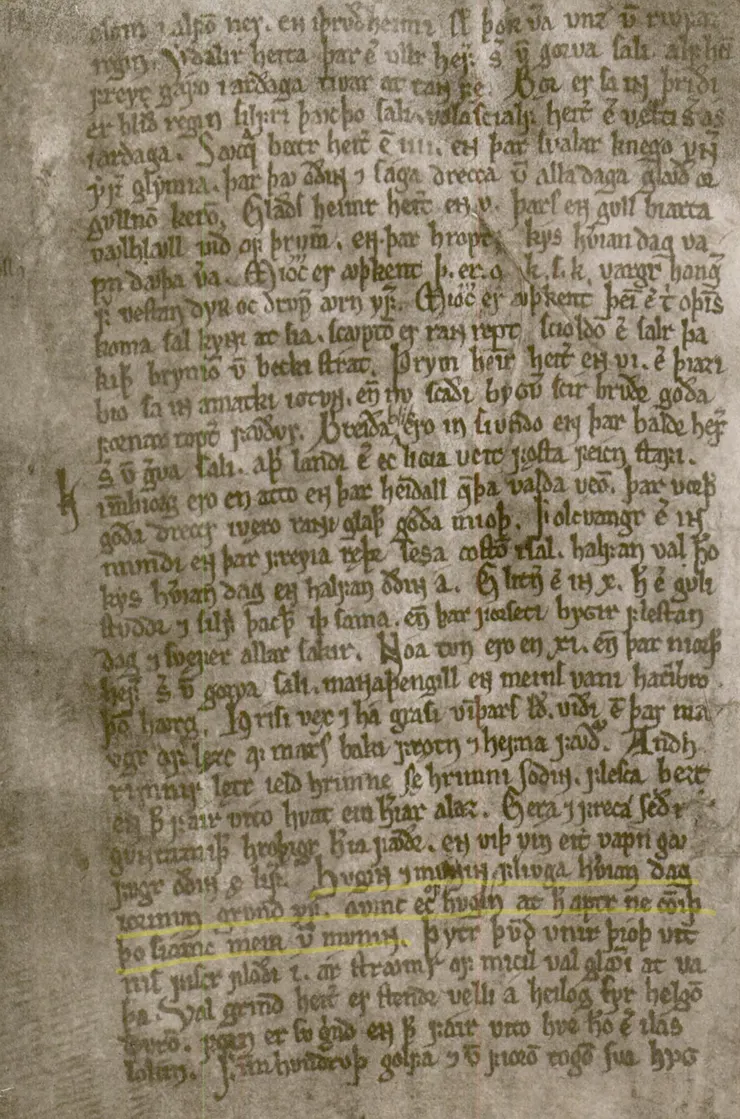 osom ⁊ alfō ner. en iþrvðheimi sl̄ þoʀ v̄a vnz v̄ rivfaz
regin. Ydalir heita þar ē vllr hef̄. s̄ v̄ gorva sali. alfhei
freyr gafo i ardaga tivar at tan fe. Bǫr er sa iɴ þriði
er blið regin silfri þǫcþo sali. valascialf heit̄ ē vęlti s̄ ás
i ardaga. Sǫcq̄ beccr heit̄ ē .iiii. en þar svalar knego vɴ̄
yf̄r glymia. þar þꜹ oðiɴ ⁊ saga drecca v̄ alla daga glꜹð or
gvllnō kerō. Glaðs heimr heit̄ en .v. þars en gvll biarta
valhꜹll við of þrvm̄. en þar hroptr kys hv̄ian dag va
pn dꜹþa v̄a. Mioc er ꜹþkent þ. er. o. k. s. k. vargr hanḡ
f̄ vestan dyʀ oc drvp̄ ꜹrn yf̄. Mioc er ꜹþkent þei ē t̄ oþins
koma sal kyɴi at sia. scꜹptō er raɴ rept scioldō ē salr þa
kiþ brynīō v̄ becki strát. Þrym heimr heit̄ en .vi. ē þiazi
bio sa iɴ amatki iotvɴ. en nv scaði byḡv̄ scir brvðr goða
fornar topt̄ fꜹðvr. Breiðablic ero in sivndo en þar baldr hef̄
s̄ v̄ ḡva sali. aþ landi ē ec liɢia veit fęsta feicn stafi.
himinbiorg ero en átto en þar heīdall q̄þa valda veō. þar vorþ
goða dreccr i vęro raɴi glaþr goða mioþ. Folcvangr ē iɴ
niundi en þar freyia ręþr sessa costō i sal. halfan val hō
kys hv̄ian dag en halfan oðiɴ á. Glitn̄ ē iɴ .x. h̄ ē gvlli
stvddr ⁊ silf̄ þacþr iþ sama. en þar forseti bygir flestan
dag ⁊ svęfer allar sakir. Noa tvn ero en .xi. en þar niorþr
hef̄ s̄ v̄ gorva sali. maɴa þengill en meins vani hátībro
þō horgi. Hrísi vex ⁊ há grasi viþars lā̄d. viði ē þar ma
vgr of lęzc af mars baki frocn ⁊ hefna fꜹðr. Andh
rimnir lętr i eld hrimne sę hrimni soðiɴ. flesca bezt
en þ̄ fair vito hvat ein hiar alaz. Gera ⁊ freca seðr
gvɴtamiþr hroþigr h̄ia fꜹðr. en viþ vin eitt vapn gꜹ
fvgr oðiɴ ę lif̄. Hvgiɴ ⁊ mvniɴ flivga hv̄ian dag
iormvn grvnd yf̄. óvmc ec of hvgin at h̄ aptr ne cōiþ
þo siamc meiʀ v̄ mvniɴ. Þytr þvnd vnir þioþ vit
nis fiscr floði i. ár strꜹmr þic̄ of micil val glꜹmi at va
þa. Val grind heit̄ er stendr velli a heilog fyr helgō
dvrō. forn er sv gīnd en þ̄ fair vito hve hō ē i lás
lokin. Fim̄ hvndrvþ golfa ⁊ v̄ fiorō togō sva hyg